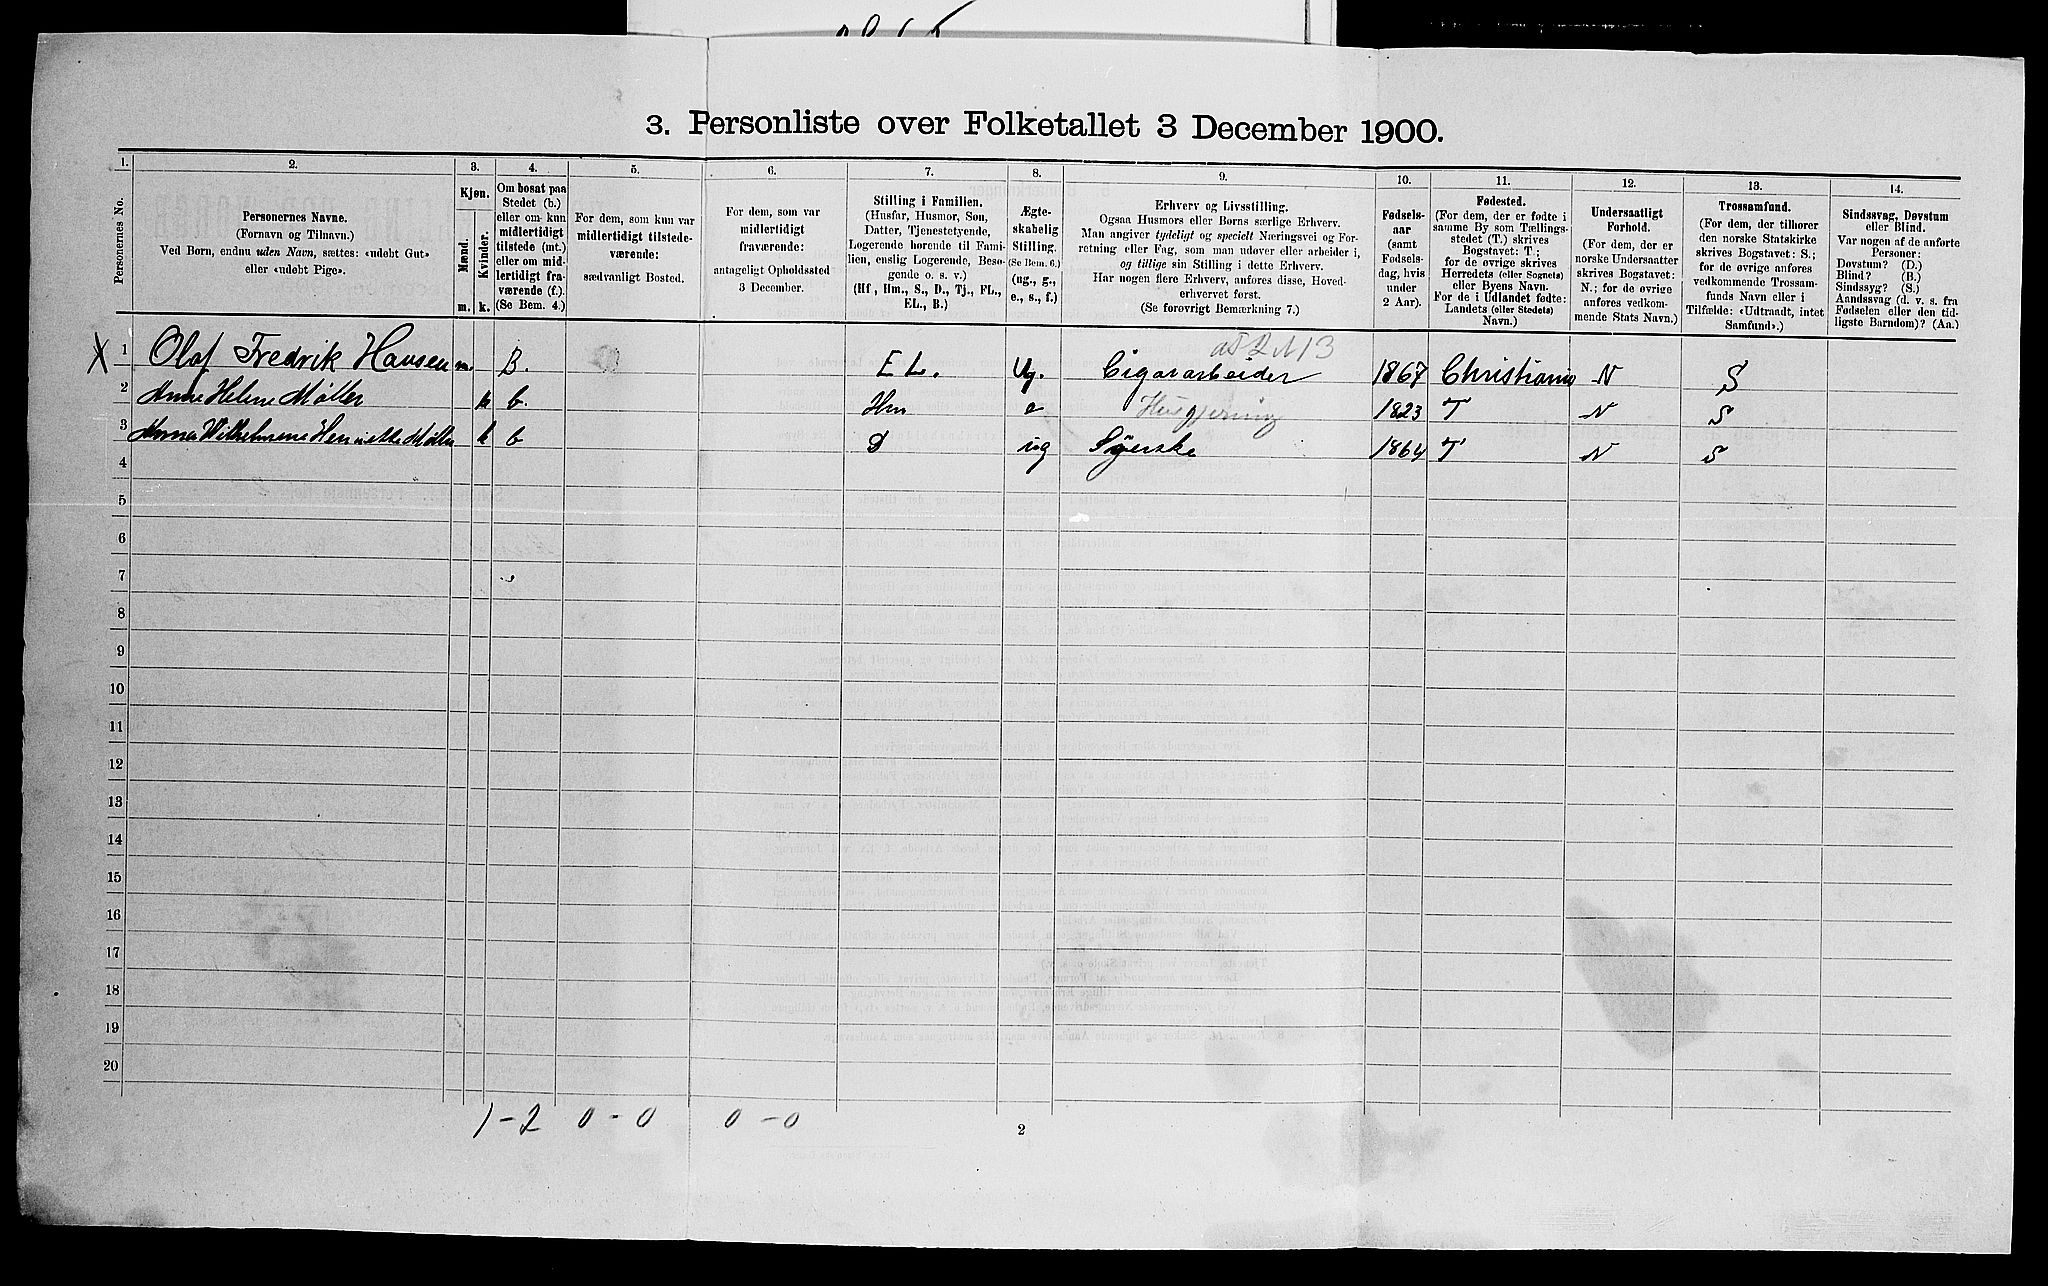 3. Personliste over Folketallet 3 December 1900.
1. 2. 3. 4. 5. 6. 7. 8. 9. 10. 11. 12. 13. 14.
Personernes No.
Personernes Navne.
(Fornavn og Tilnavn.)
Ved Børn, endnu uden Navn, sættes: «udøbt Gut»
eller «udøbt Pige».
Kjøn.
Mænd.
Kvinder.
m. k.
Om bosat paa
Stedet (b.)
eller om kun
midlertidigt
tilstede (mt.)
eller om mid-
lertidigt fra-
værende (f.).
(Se Bem. 4.)
For dem, som kun var
midlertidigt tilstede-
værende:
sædvanligt Bosted.
For dem, som var
midlertidigt
fraværende:
antageligt Opholdssted
3 December.
Stilling i Familien.
(Husfar, Husmor, Søn,
Datter, Tjenestetyende,
Logerende hørende til Fami-
lien, enslig Logerende, Besø-
gende o. s. v.)
(Hf, Hm., S., D., Tj., FL.,
EL., B.)
Ægte-
skabelig
Stilling.
(Se Bem. 6.)
(ug., g.,
e., s., f.)
Erhverv og Livsstilling.
Ogsaa Husmors eller Børns særlige Erhverv.
Man angiver tydeligt og specielt Næringsvei og For-
retning eller Fag, som man udøver eller arbeider i,
og tillige sin Stilling i dette Erhverv.
Har nogen flere Erhverv, anføres disse, Hoved-
erhvervet først.
(Se forøvrigt Bemærkning 7.)
Fødsels-
aar
(samt
Fødsels-
dag, hvis
under
2 Aar).
Fødested.
(For dem, der er fødte i
samme By som Tællings-
stedet (T.) skrives
Bogstavet: T.;
for de øvrige skrives
Herredets (eller Sognets)
eller Byens Navn.
For de i Udlandet fødte:
Landets (eller Stedets)
Navn.)
Undersaatligt
Forhold.
(For dem, der er
norske Undersaatter
skrives Bogstavet:
N.; for de øvrige
anføres vedkom-
mende Stats Navn.)
Trossamfund.
(For dem, der tilhører
den norske Statskirke
skrives Bogstavet: S.;
for de øvrige anføres
vedkommende Trossam-
funds Navn eller i
Tilfælde: «Udtraadt, intet
Samfund».)
Sindssvag, Døvstum
eller Blind.
Var nogen af de anførte
Personer:
Døvstum? (D.)
Blind? (B.)
Sindssyg? (S.)
Aandssvag (d. v. s. fra
Fødselen eller den tid-
ligste Barndom)? (Aa.)
X 1 Olaf Fredrik Hansen m. B. EL. Ug. Cigararbeider 1867 Christiania N S
2 Anne Helene Møller k b. Hm e Husgjerning 1823 T N S
3 Anna Wilhelmine Henriette Møller k b D ug Syerske 1864 T N S
4
5
6
7
8
9
10
11
12
13
14
15
16
17
18
19
20
1 - 2 0 - 0 0 - 0
2